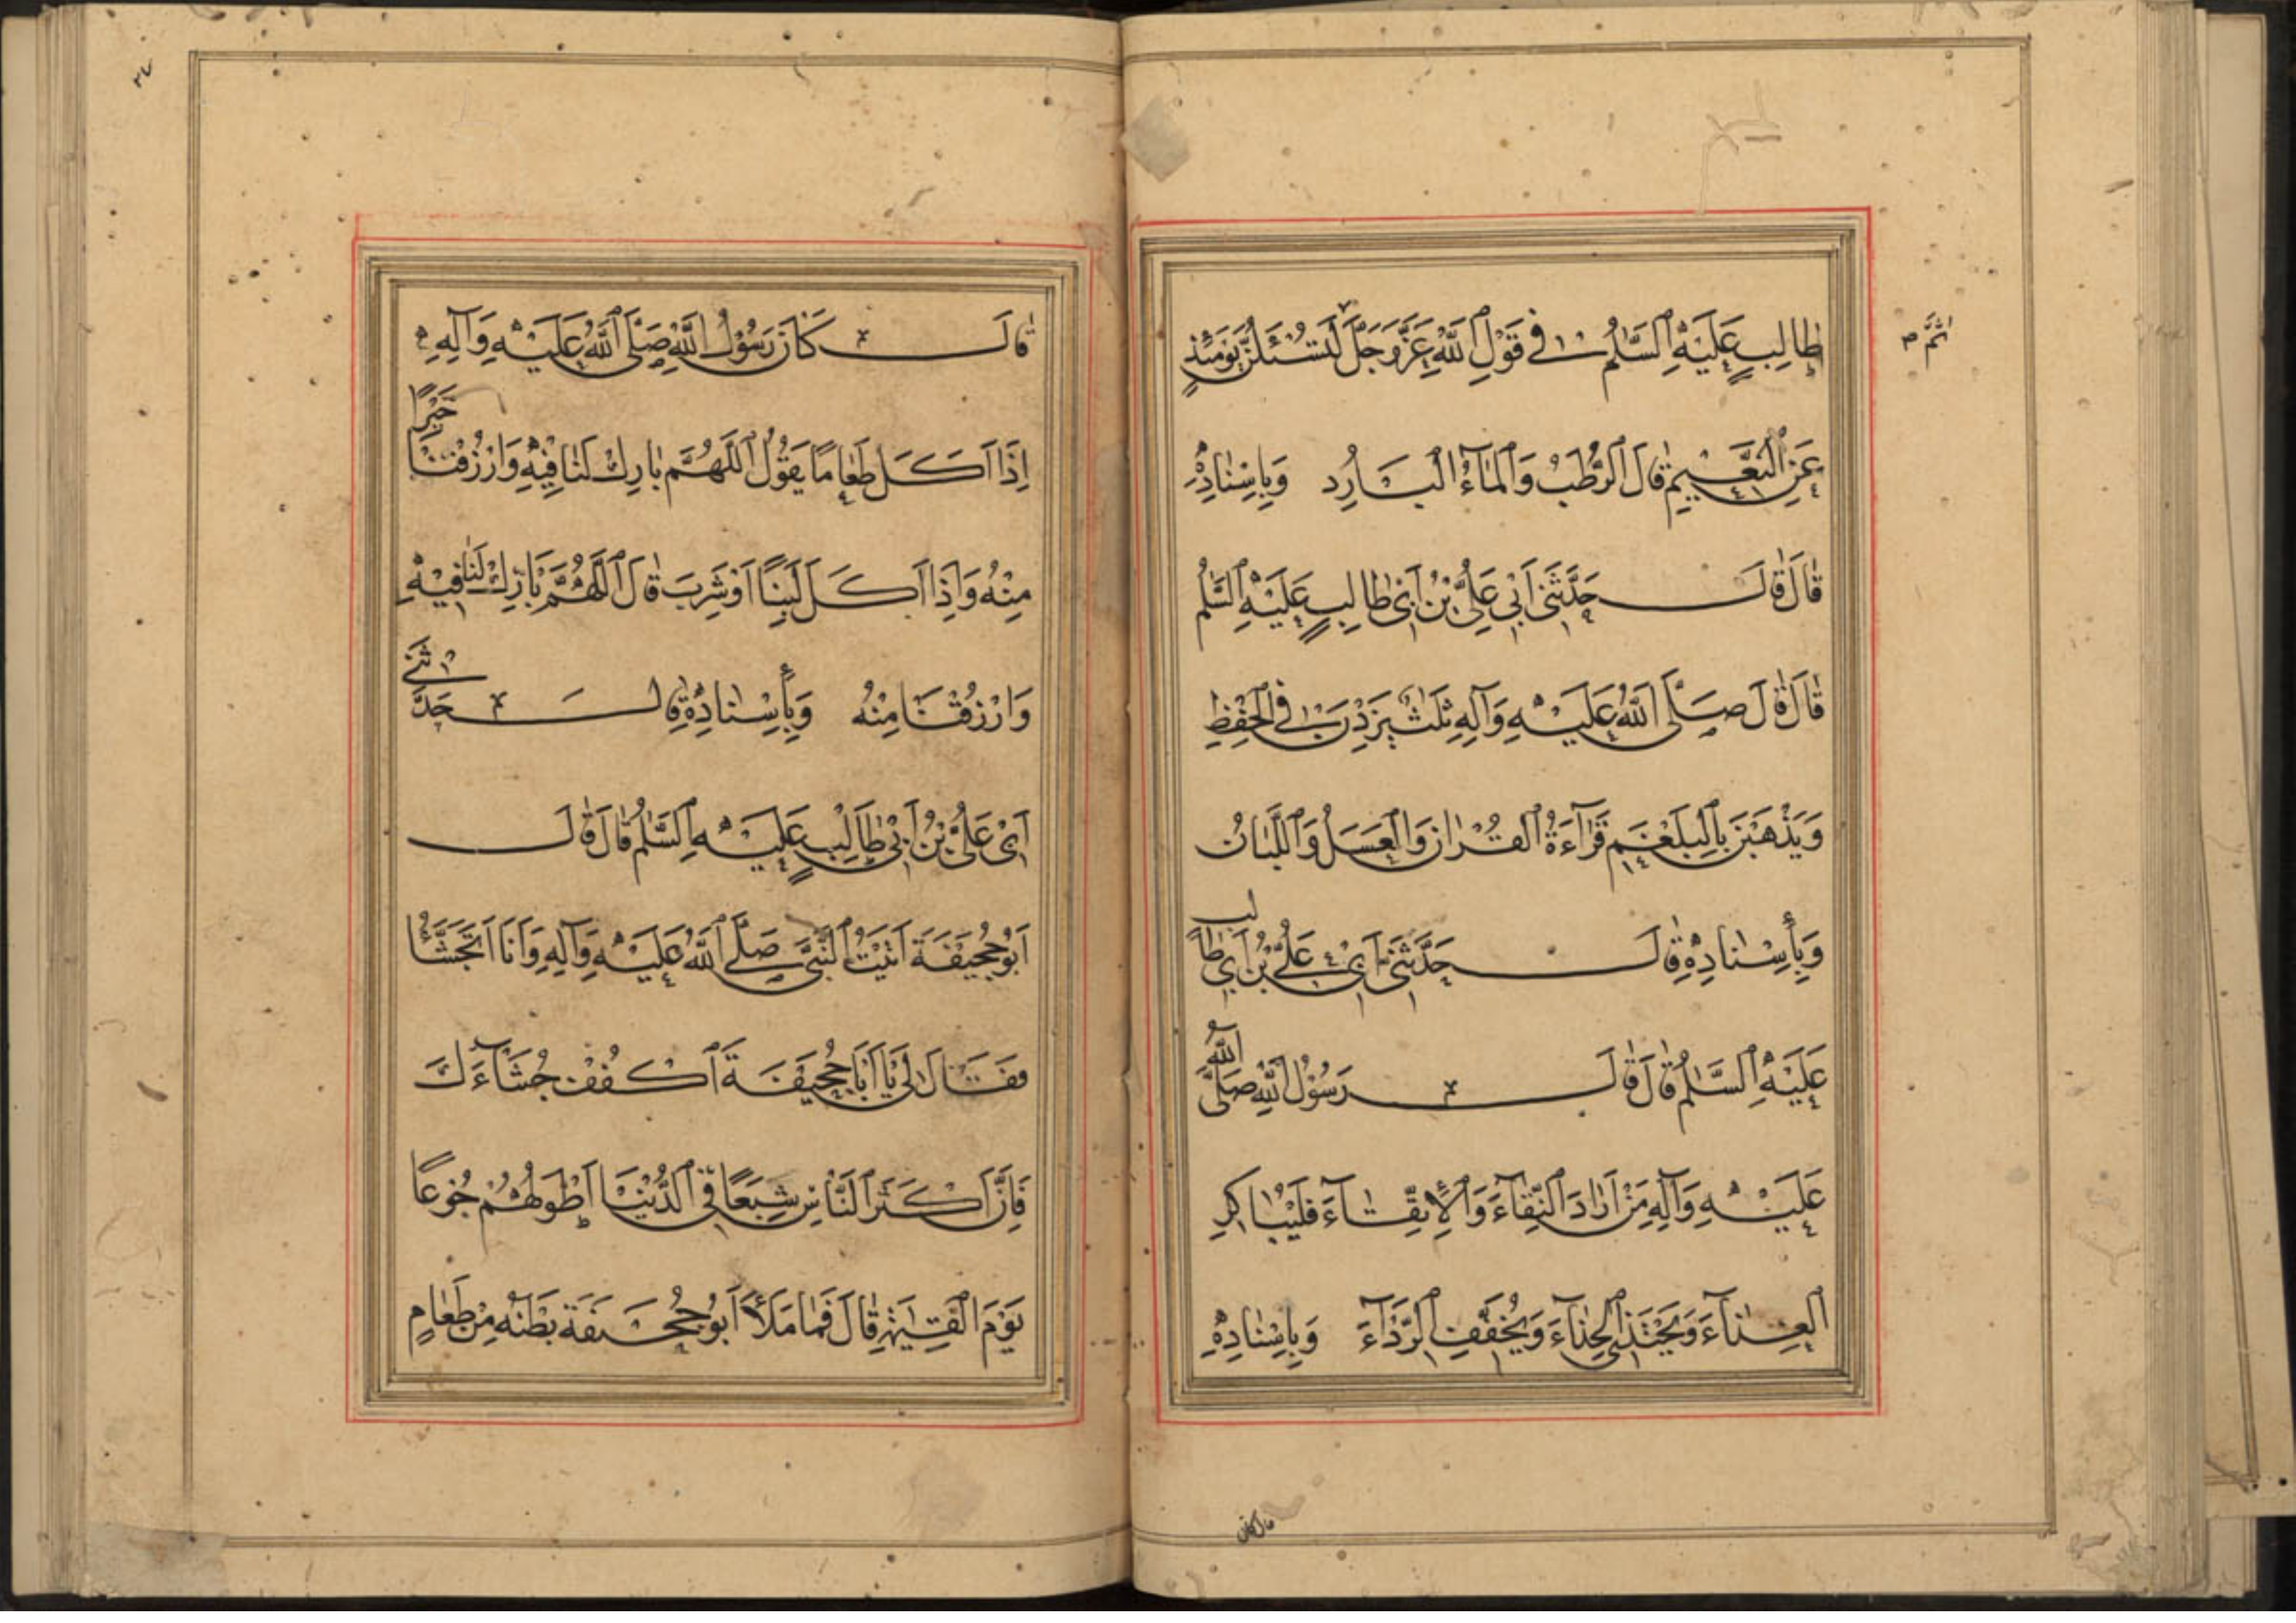 ثُمَّ
طَالِبٍ عَلَيْهِ السَّلٰمُ فِي قَوْلِ اللّٰهِ عَزَّ وَجَلَّ لَتُسْئَلُنَّ يَوْمَئِذٍ
عَنِ النَّعِيمِ قَالَ الرُّطَبُ وَالْمَاۤءُ الْبَارِدُ وَبِاِسْنَادِهِ
قَالَ قَالَ حَدَّثَنِي اَبِي عَلِيُّ بْنُ اَبِي طَالِبٍ عَلَيْهِ السَّلٰمُ
قَالَ قَالَ صَلَّى اللّٰهُ عَلَيْهِ وَآلِهِ ثَلٰثٌ يَزِدْنَ فِي الْحِفْظِ
وَيَذْهَبْنَ بِالْبَلْغَمِ قَرَاۤءَةُ الْقُرْانِ وَالْعَسَلُ وَاللُّبَانُ
وَبِأِسْنَادِهِ قَالَ حَدَّثَنِي اَبِي عَلِيُّ بْنُ اَبِي طَالِبٍ
عَلَيْهِ السَّلٰمُ قَالَ قَالَ رَسُوْلُ اللّٰهِ صَلَّى اللّٰهُ
عَلَيْهِ وَآلِهِ مَنْ اَرَادَ الْبَقَاۤءَ وَلَا بَقَاۤءَ فَلْيُبَاكِرِ
الْغِذَاۤءَ وَيَحْتَذِي الْحِذَاۤءَ وَيُخَفِّفِ الرِّدَاۤءَ وَبِاِسْنَادِهِ
قال كان
٢٧
قَالَ كَانَ رَسُوْلُ اللّٰهِ صَلَّى اللّٰهُ عَلَيْهِ وَآلِهِ
اِذَا اَكَلَ طَعَامًا يَقُوْلُ اَللّٰهُمَّ بَارِكْ لَنَا فِيْهِ وَارْزُقْنَا خَيْرًا
مِنْهُ وَاِذَا اَكَلَ لَبَنًا اَوْ شَرِبَ قَالَ اَللّٰهُمَّ بَارِكْ لَنَا فِيْهِ
وَارْزُقْنَا مِنْهُ وَبِأِسْنَادِهِ قَالَ حَدَّثَنِي
اَبِي عَلِيُّ بْنُ اَبِي طَالِبٍ عَلَيْهِ السَّلٰمُ قَالَ قَالَ
اَبُو جُحَيْفَةَ اَتَيْتُ النَّبِيَّ صَلَّى اللّٰهُ عَلَيْهِ وَآلِهِ وَاَنَا اَتَجَشَّأُ
فَقَالَ لِي يَا اَبَا جُحَيْفَةَ اُكْفُفْ جُشَاۤءَكَ
فَاِنَّ اَكْثَرَ النَّاسِ شِبَعًا فِي الدُّنْيَا اَطْوَلُهُمْ جُوْعًا
يَوْمَ الْقِيٰمَةِ قَالَ فَمَا مَلَأَ اَبُو جُحَيْفَةَ بَطْنَهُ مِنْ طَعَامٍ